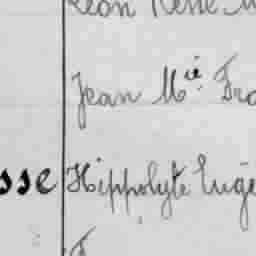 Léon René M
Jean Mie Fra
sse Hippolyte Eugè